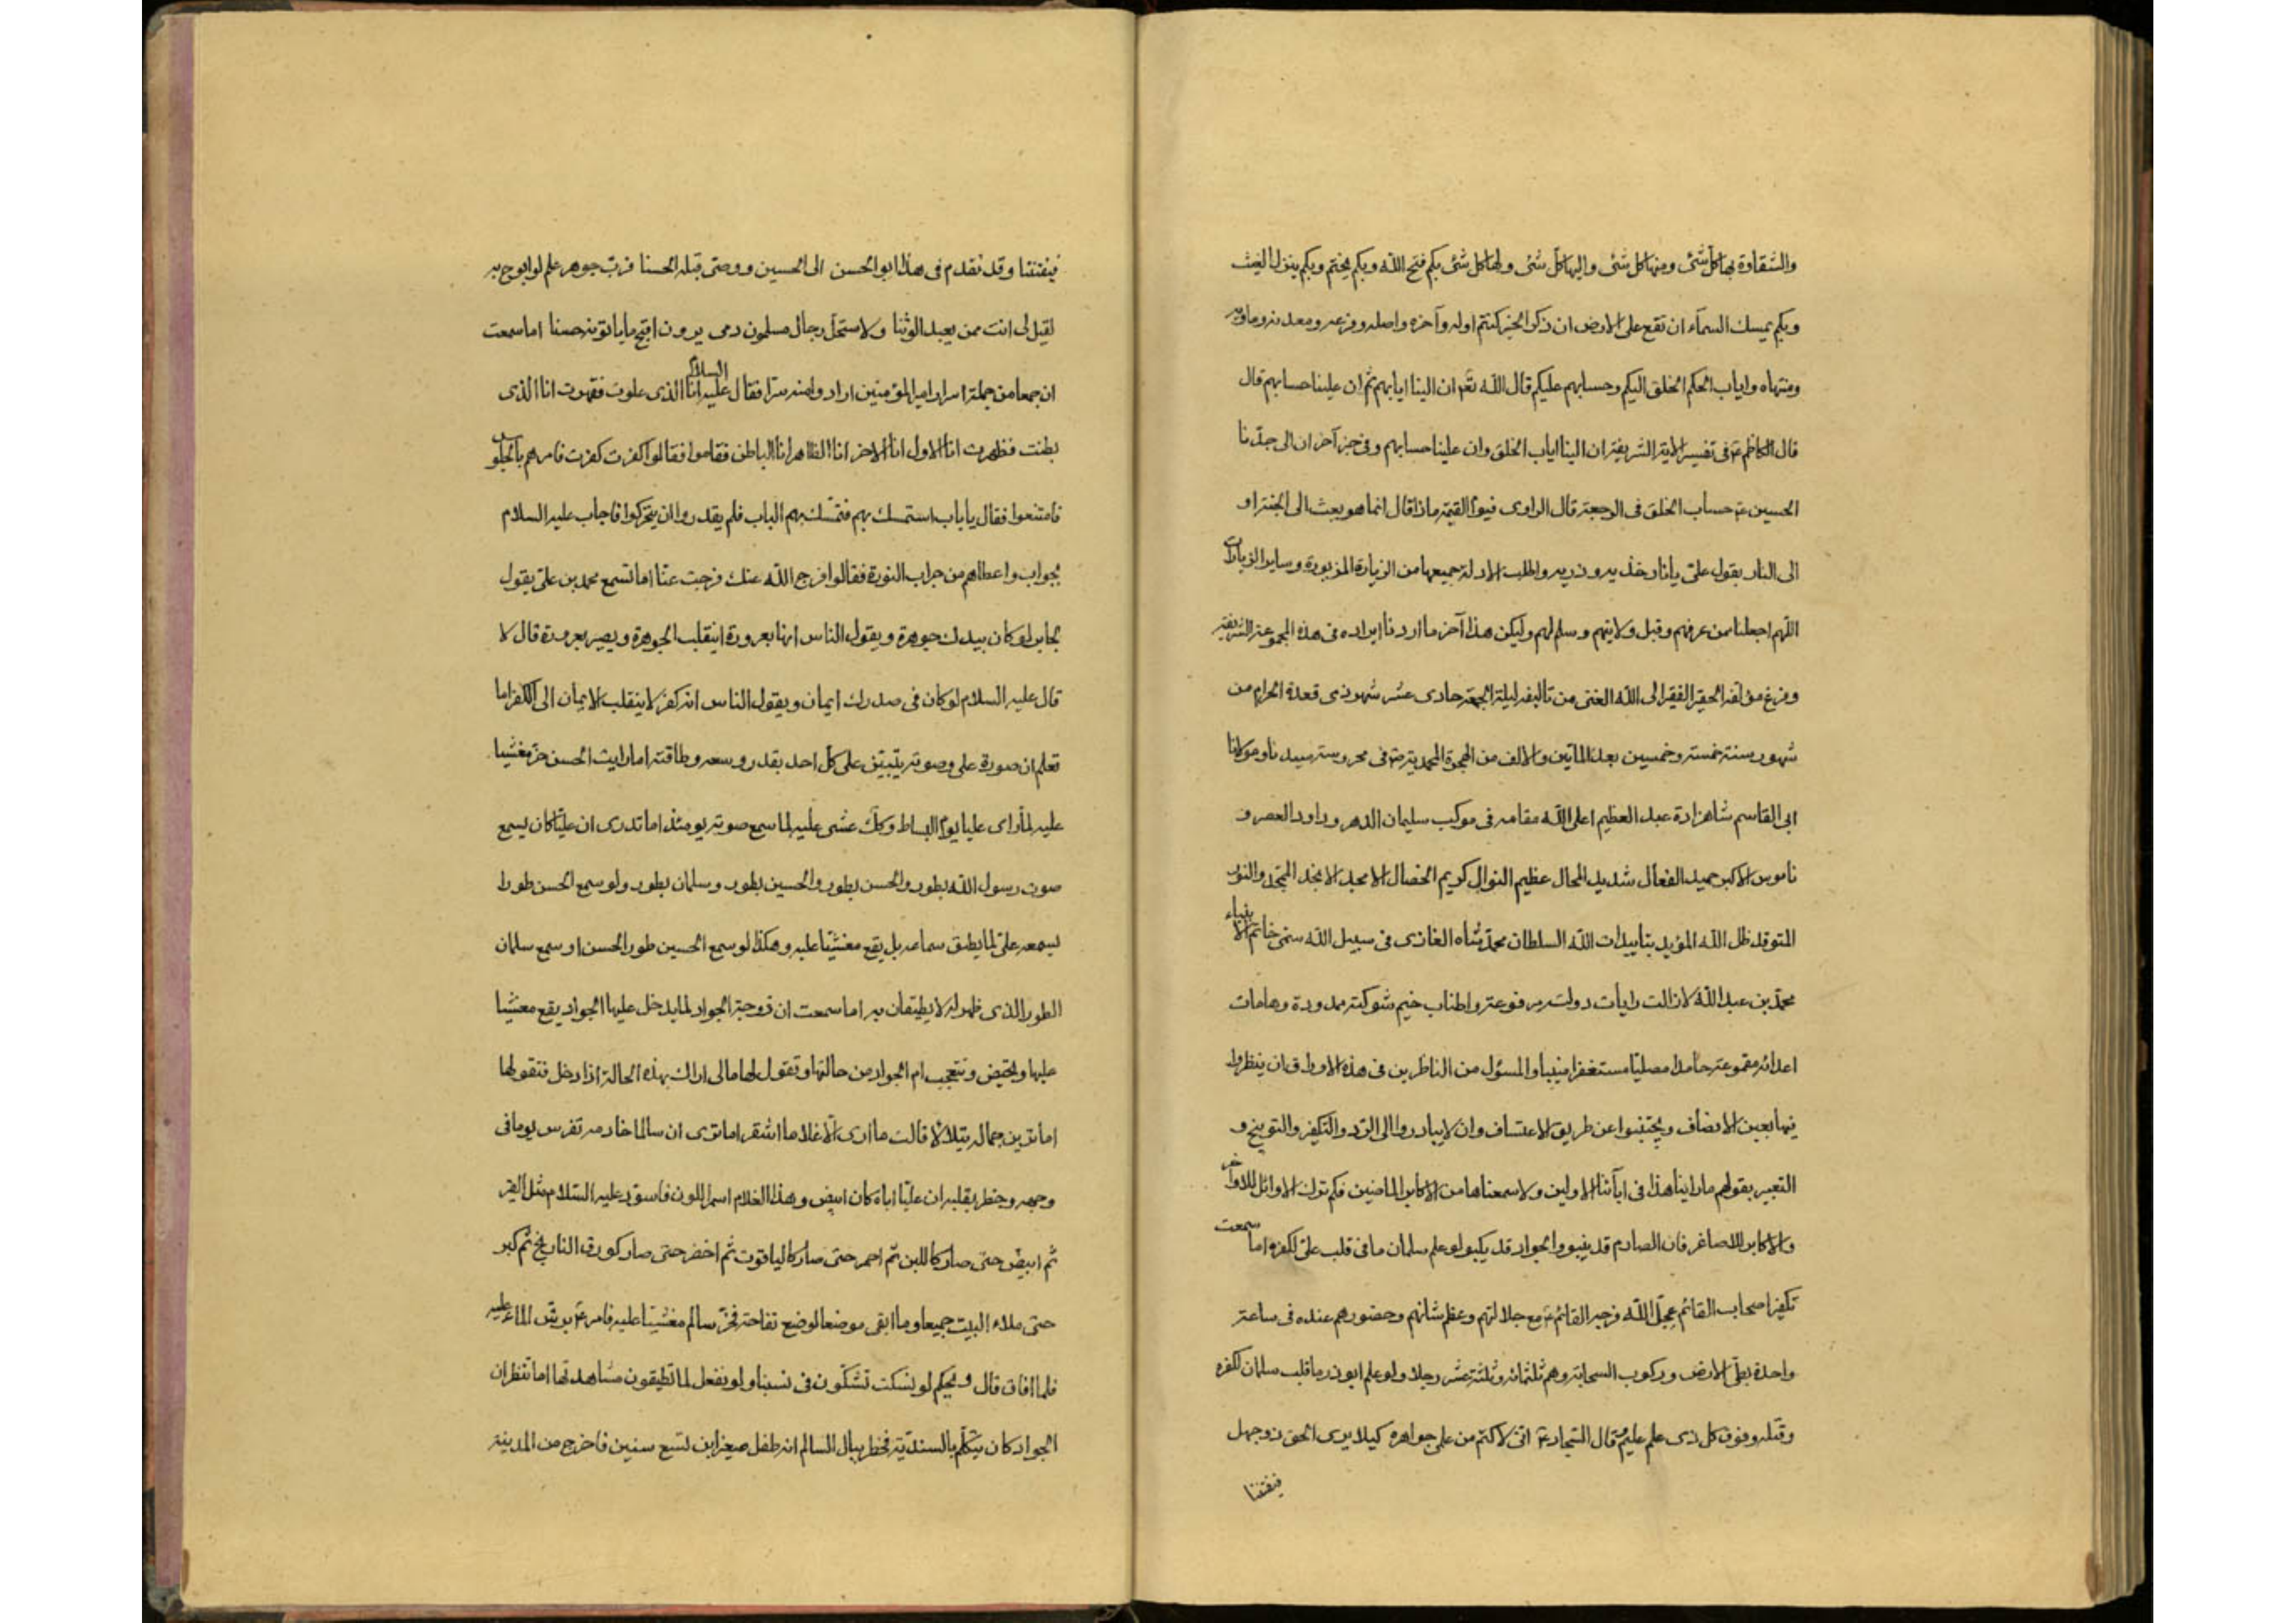 والشقاوة بها كل شئ ومنها كل شئ واليها كل شئ ولها كل شئ بكم فتح الله وبكم يختم وبكم ينزل الغيث
وبكم يمسك السمآء ان تقع على الارض ان ذكر الخير كنتم اوله وآخره واصله وفرعه ومعدنه وماويه
ومنتهاه واياب الحكم الخلق اليكم وحسابهم عليكم قال الله تع ان الينا ايابهم ثم ان علينا حسابهم قال
قال الكاظم ع في تفسير الاية الشريفة ان الينا اياب الخلق وان علينا حسابهم وفي خبر آخر ان الى جدنا
الحسين ع حساب الخلق في الرجعة قال الراوى فيوم القيمة ماذا قال انما هو بعث الى الجنة او
الى النار يقول علي يا نار خذيه وذريه واطلب الادلة جميعها من الزيارة المزبورة وساير الزيارات
اللهم اجعلنا ممن عرفهم وقبل ولايتهم وسلم لهم وليكن هذا آخر ما اردنا ايراده في هذه المجموعة الشريفة
وفرغ مؤلفه الحقير الفقير الى الله الغنى من تاليفه ليلة الجمعة حادى عشر شهر ذى قعدة الحرام من
شهور سنة خمسة وخمسين بعد المأتين والالف من الهجرة المحمدية ص في محروسة سيدنا ومولانا
ابى القاسم شاهزادة عبد العظيم اعلى الله مقامه في موكب سليمان الدهر وداود العصر و
ناموس الاكبر حميد الفعال شديد المحال عظيم النوال كريم الخصال الامجد الانجد المتجد والنور
المتوقد ظل الله المؤيد بتاييدات الله السلطان محمد شاه الغازى في سبيل الله سمى خاتم الانبياء
محمد بن عبد الله لا زالت رايات دولته مرفوعة واطناب خيم شوكته ممدودة وهامات
اعدائه مقموعة حامدا مصليا مستغفرا منيبا والمسئول من الناظرين في هذه الاوراق ان ينظروا
فيها بعين الانصاف ويجتنبوا عن طريق الاعتساف وان لا يبادروا الى الرد والتكفير والتوبيخ و
التعيير بقولهم ما راينا هذا في ابآئنا الاولين ولا سمعناها من الاكابر الماضين فكم ترك الاوائل للاواخر
والاكابر للاصاغر فان الصارم قد ينبو والجواد قد يكبو لو علم سلمان ما في قلب علي لكفره اما سمعت
تكفير اصحاب القائم عجل الله فرجه القائم ع مع جلالتهم وعظم شانهم وحضورهم عنده في ساعة
واحدة بطي الارض وركوب السحابة وهم ثلثمائة وثلثة عشر رجلا ولو علم ابوذر ما قلب سلمان لكفره
وقتله وفوق كل ذى علم عليم وقال السجاد ع انى لاكتم من علمى جواهره كيلا يرى الحق ذو جهل
فيفتننا
فيفتننا وقد تقدم في هذا ابو الحسن الى الحسين ووصى قبله الحسنا فرب جوهر علم لو ابوح به
لقيل لى انت ممن يعبد الوثنا ولا ستحل رجال مسلمون دمى يرون اقبح ما ياتونه حسنا اما سمعت
ان جمعا من جملة اسرار امير المؤمنين ارادوا منه سرا فقال عليه السلام انا الذى علوت فقهرت انا الذى
بطنت فظهرت انا الاول انا الاخر انا الظاهر انا الباطن فقاموا فقالوا كفرت كفرت فامرهم بالجلوس
فامتنعوا فقال يا باب استمسك بهم فتمسك بهم الباب فلم يقدروا ان يتحركوا فاجاب عليه السلام
بجواب واعطاهم من جراب النورة فقالوا فرج الله عنك فرجت عنا اما تسمع محمد بن علي يقول
لجابر لو كان بيدك جوهرة ويقول الناس انها بعرورة اينقلب الجوهرة ويصير بعرورة قال لا
قال عليه السلام لو كان في صدرك ايمان ويقول الناس انه كفر لا ينقلب الايمان الى الكفر اما
تعلم ان صورة علي وصوته يتبين على كل احد بقدر وسعه وطاقته اما رايت الحسن خر مغشيا
عليه لما راى عليا يوم البساط وكل غشى عليه لما سمع صوته يومئذ اما تدرى ان عليا كان يسمع
صوت رسول الله بطور والحسن بطور والحسين بطور وسلمان بطور ولو سمع الحسن طورا
يسمعه علي لما يطيق سماعه بل يقع مغشيا عليه وهكذا لو سمع الحسين طور الحسن او سمع سلمان
الطور الذى ظهر له لا يطيقان به اما سمعت ان زوجة الجواد لما يدخل عليها الجواد يقع مغشيا
عليها وتحيض ونتعجب ام الجواد من حالتها وتقول لها مالى اراك بهذه الحالة اذا دخل فتقولها
اما ترين جماله يتلالأ قالت ما ارى الا غلاما اشقر اما ترى ان سالما خادمه تفرس يوما في
وجهه وخطر بقلبه ان عليا اباه كان ابيض وهذا الغلام اسمر اللون فاسود عليه السلام مثل القير
ثم ابيض حتى صار كاللبن ثم احمر حتى صار كالياقوت ثم اخضر حتى صار كورق النارنج ثم كبر
حتى ملاء البيت جميعا وما ابقى موضعا لوضع تفاحة فخر سالم مغشيا عليه فامر ع برش الماء عليه
فلما افاق قال ويحكم لو نسكت تشكون في نسبنا ولو نفعل لما تطيقون مشاهدتها اما تنظر ان
الجواد كان يتكلم بالسندية فخطر ببال السالم انه طفل صغير ابن تسع سنين فاخرج من المدينة